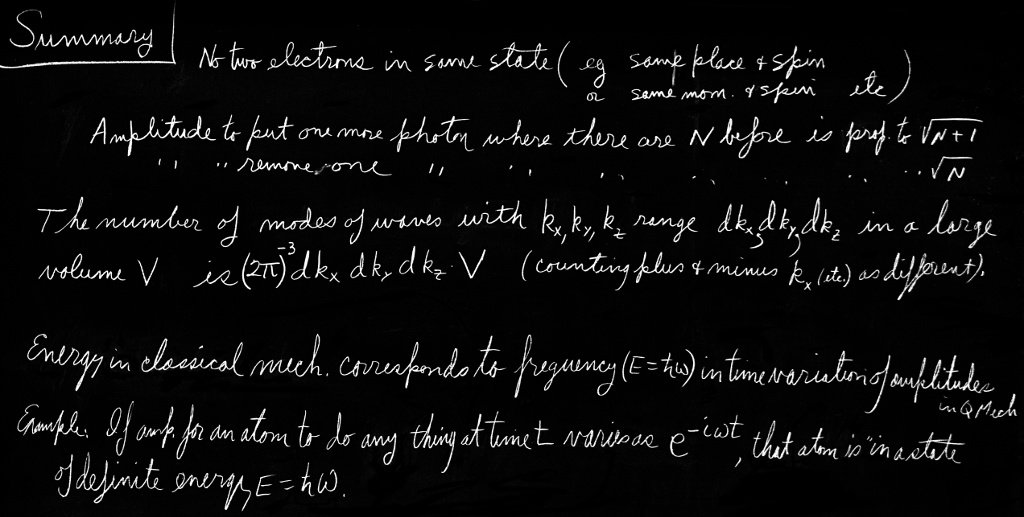 Summary
No two electrons in same state (eg same place + spin
or same mom. & spin etc)
Amplitude to put one more photon where there are N before is prop. to √N+1
" " remove one " " " " " " √N
The number of modes of waves with kx, ky, kz range dkx, dky, dkz in a large
volume V is (2π)⁻³ dkx dky dkz · V (counting plus & minus kx (etc.) as different).
Energy in classical mech. corresponds to frequency (E = ħω) in time variation of amplitudes
in Q Mech
Example: If amp. for an atom to do any thing at time t varies as e^{-iωt}, that atom is "in a state
of definite energy, E = ħω.